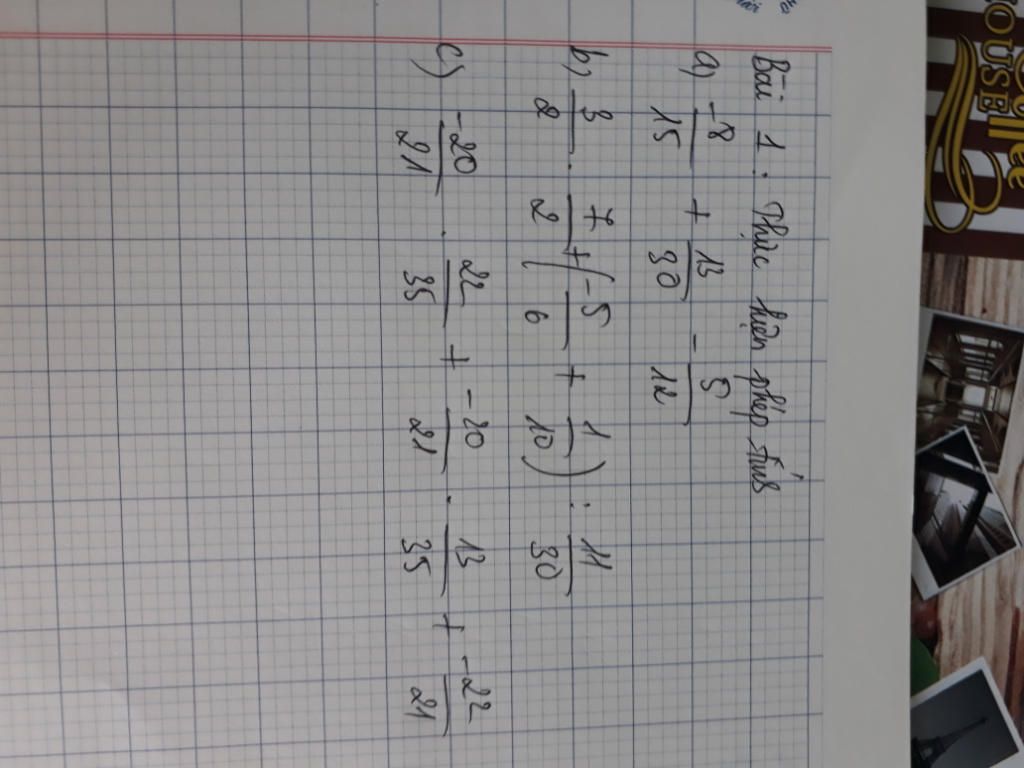 Bài 1 : Thực hiện phép tính
a) -8/15 + 13/30 - 5/12
b) 3/2 . 7/2 + (-5/6 + 1/10) : 11/30
c) -20/21 . 22/35 + -20/21 . 13/35 + -22/21
OUSE